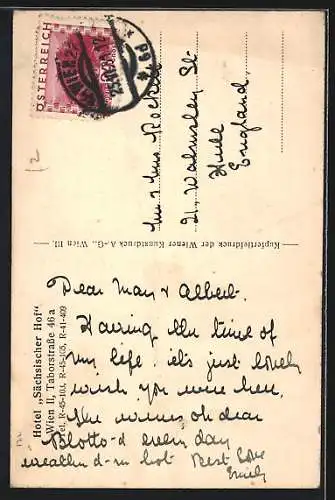 ÖSTERREICH
WIEN
Mr & Mrs
21, Walmsley St.
Hull
England.
Kupfertiefdruck der Wiener Kunstdruck A.-G., Wien III.
Hotel „Sächsischer Hof“
Wien II, Taborstraße 46a
Tel. R-45-104, R-45-105, R-41-409
Dear May & Albert.
Having the time of
my life. it's just lovely
wish you were here.
The wines oh dear
Blotto-d every day
weather d-m hot Best love
Emily